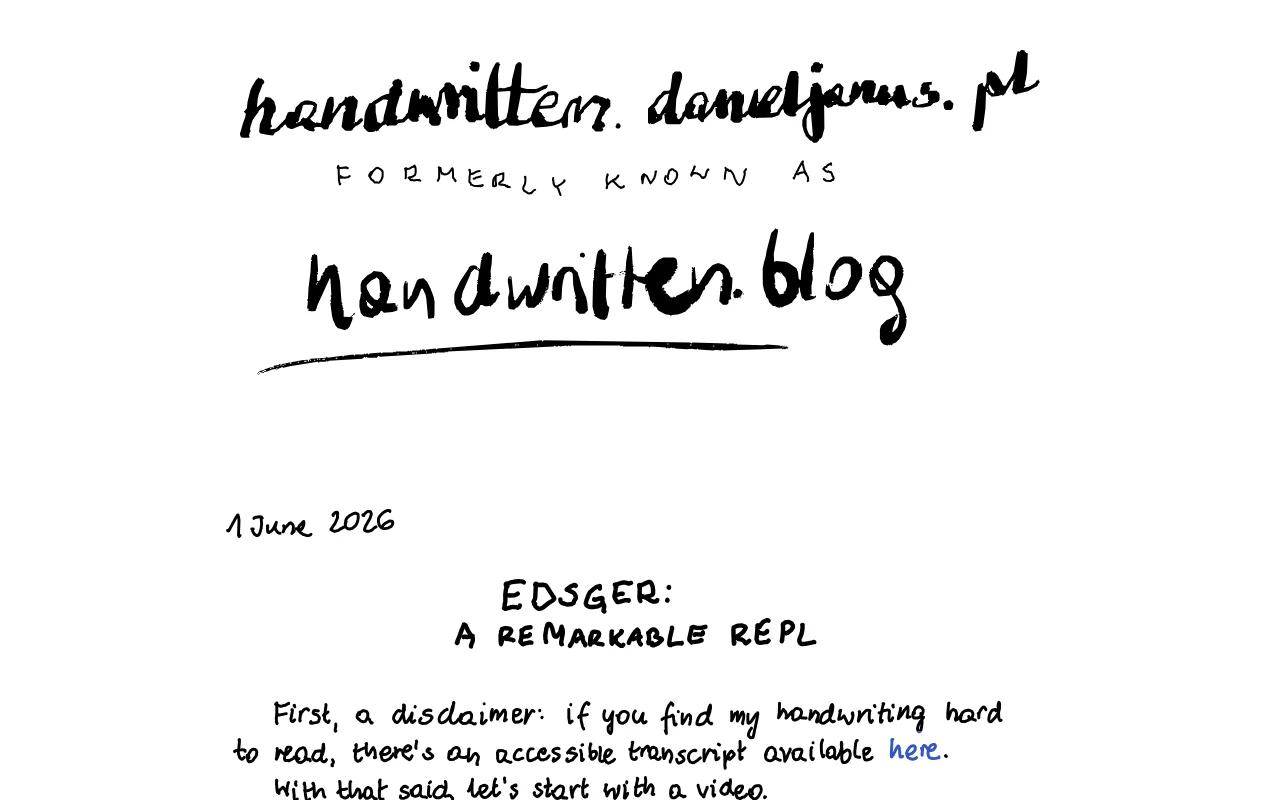 handwritten. danieljanus. pl
FORMERLY KNOWN AS
handwritten.blog
1 June 2026
EDSGER:
A REMARKABLE REPL
First, a disclaimer: if you find my handwriting hard
to read, there's an accessible transcript available here.
With that said, let's start with a video.